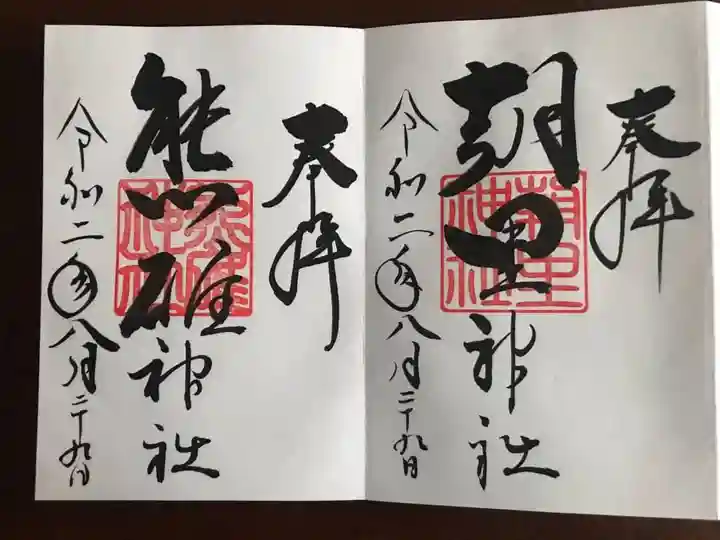 奉拝
朝里神社
朝里
神社
令和二年八月二十九日
奉拝
熊碓神社
熊碓
神社
令和二年八月二十九日